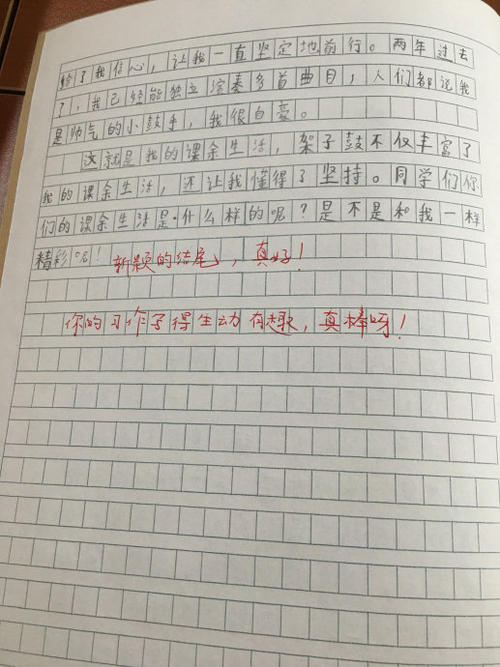 给了我信心，让我一直坚定地前行。两年过去
了，我已经能独立演奏多首曲目，人们都说我
是帅气的小鼓手，我很自豪。
这就是我的课余生活，架子鼓不仅丰富了
我的课余生活，还让我懂得了坚持。同学们你
们的课余生活是什么样的呢？是不是和我一样
精彩呢！新颖的结尾，真好！
你的习作写得生动有趣，真棒呀！